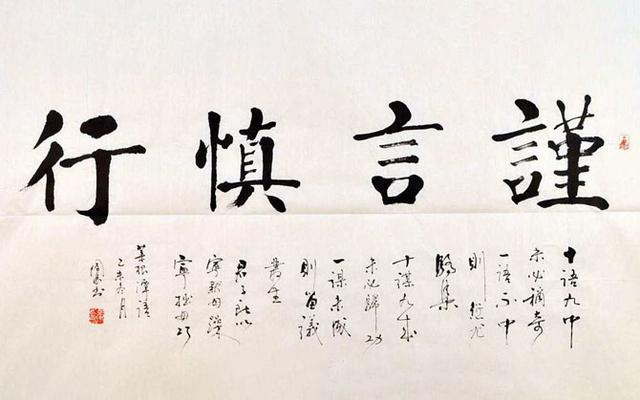 謹言慎行
十語九中
未必稱奇
一語不中
則愆尤
駢集
十謀九成
未必歸功
一謀未成
則訾議
叢生
君子所以
寧默毋躁
寧拙毋巧
菜根譚語
乙未 月
書